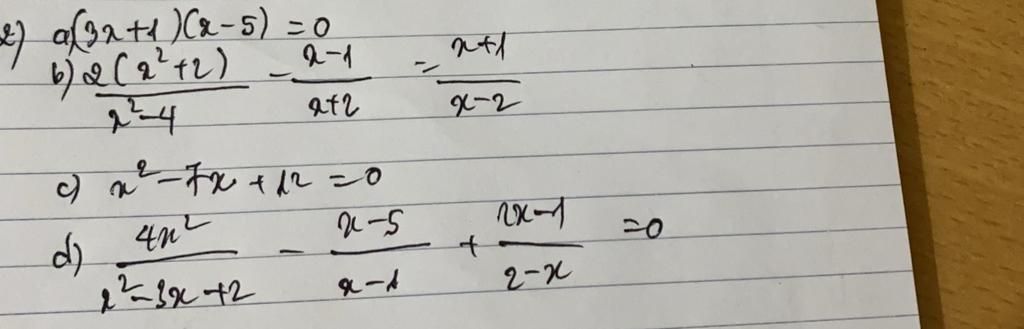 2) a) (3x+1)(x-5) = 0
b) \frac{2(x^2+2)}{x^2-4} - \frac{x-1}{x+2} = \frac{x+1}{x-2}
c) x^2-7x+12 = 0
d) \frac{4x^2}{x^2-3x+2} - \frac{x-5}{x-1} + \frac{2x-1}{2-x} = 0